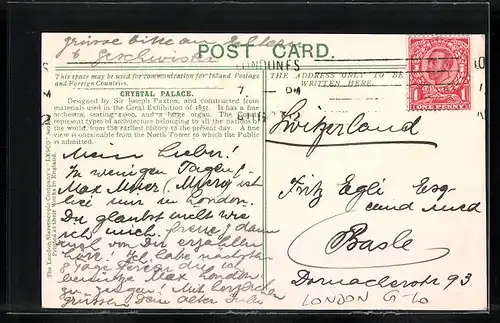 grüsse bitte an Eltern
& Geschwister
POST CARD.
This space may be used for communication for Inland Postage
and Foreign Countries.
THE ADDRESS ONLY TO BE
WRITTEN HERE.
CRYSTAL PALACE.
Designed by Sir Joseph Paxton, and constructed from
materials used in the Great Exhibition of 1851. It has a fine
orchestra, seating 4000, and a large organ. The
represent types of architecture belonging to all the nations of
the world, from the earliest history to the present day. A fine
view is obtainable from the North Tower to which the Public
is admitted.
The London Stereoscopic Company's "LESCO" Series
Printed at their Works in England.
LONDON
ONE PENNY
1 1
Mein Lieber!
In wenigen Tagen
Max Meier ist
bei mir in London.
Du glaubst nicht wie
ich mich freue! dann
viel von Dir erzählen
Ich habe nächstens
8 Tage Ferien
Max London
zu zeigen! Mit herzlichen
Grüssen, Dein alter
Switzerland
Fritz Egli Esq
cand med
Basle
Dornacherstr 93
LONDON